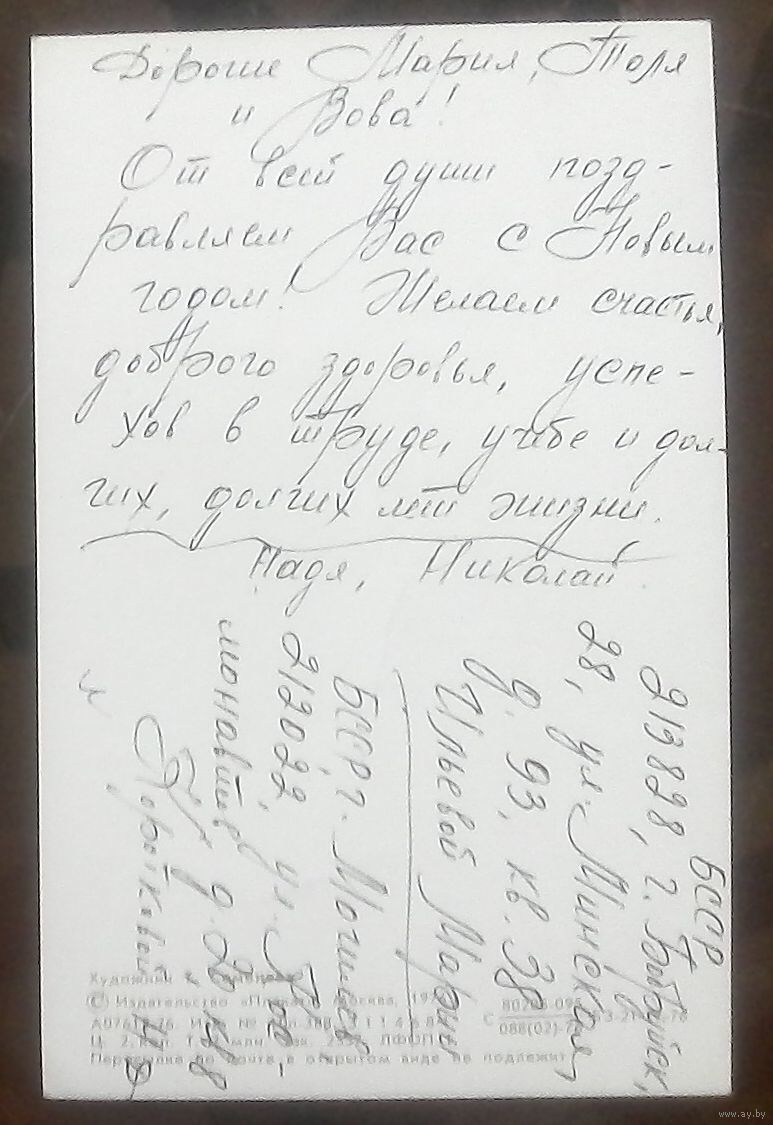 Дорогие Мария, Толя
и Вова!
От всей души позд-
равляем Вас с Новым
годом! Желаем счастья,
доброго здоровья, успе-
хов в труде, учёбе и дол-
гих, долгих лет жизни.
Надя, Николай.
БССР
213828, г. Бобруйск,
28, ул. Минская,
д. 93, кв. 38
Ильевой Марии
БССР г. Могилев,
212022, ул.
д.
Художник
© Издательство Москва, 197
80206-095
088(02)-7
Пересылка по почте в открытом виде не подлежит
www.ay.by